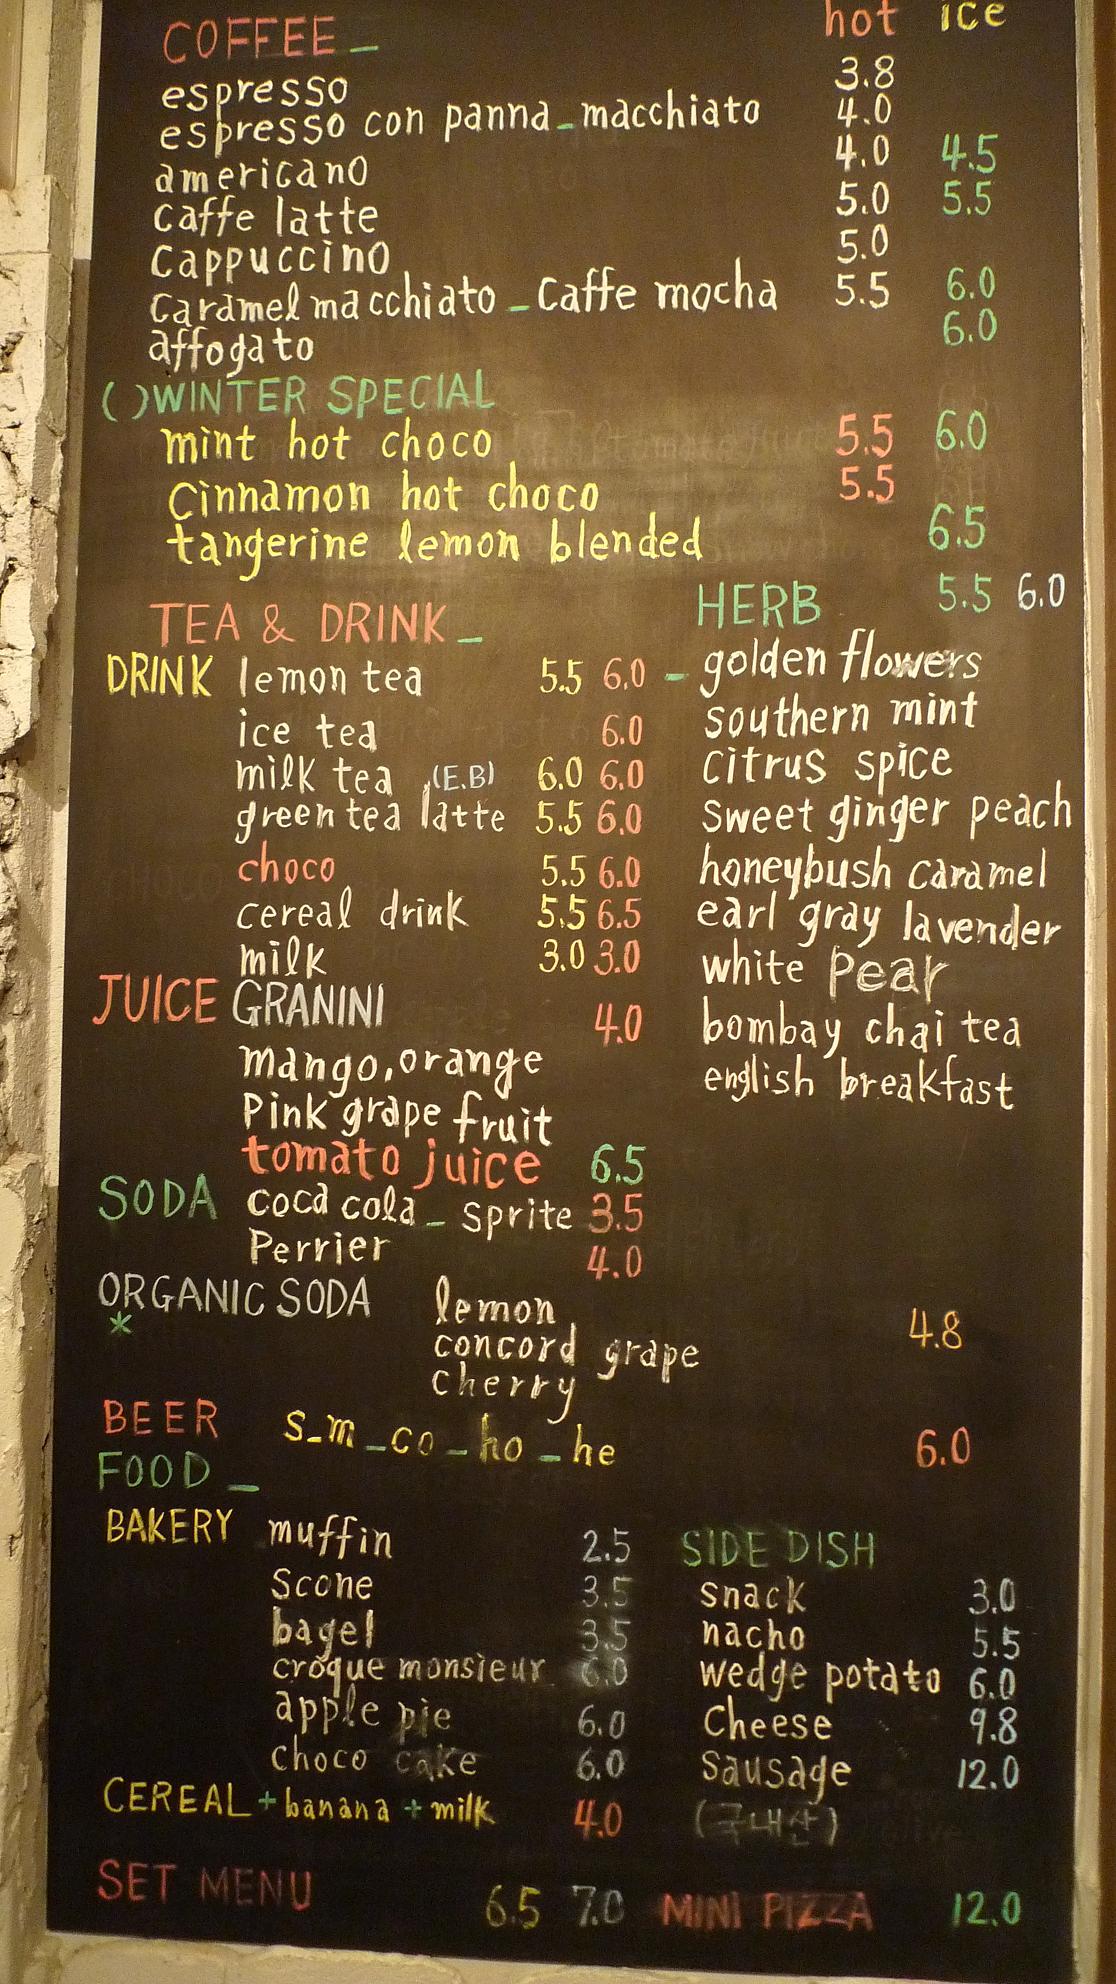 COFFEE_ hot ice
espresso 3.8
espresso con panna_macchiato 4.0
americano 4.0 4.5
caffe latte 5.0 5.5
cappuccino 5.0
caramel macchiato_caffe mocha 5.5 6.0
affogato 6.0
( )WINTER SPECIAL
mint hot choco 5.5 6.0
cinnamon hot choco 5.5
tangerine lemon blended 6.5
TEA & DRINK_
DRINK lemon tea 5.5 6.0
ice tea 6.0
milk tea (E.B) 6.0 6.0
green tea latte 5.5 6.0
choco 5.5 6.0
cereal drink 5.5 6.5
milk 3.0 3.0
JUICE GRANINI 4.0
mango,orange
Pink grape fruit
tomato juice 6.5
SODA coca cola_sprite 3.5
Perrier 4.0
HERB 5.5 6.0
_golden flowers
southern mint
citrus spice
sweet ginger peach
honeybush caramel
earl gray lavender
white pear
bombay chai tea
english breakfast
ORGANIC SODA lemon
* concord grape 4.8
cherry
BEER s_m_co_ho_he 6.0
FOOD_
BAKERY muffin 2.5
scone 3.5
bagel 3.5
croque monsieur 6.0
apple pie 6.0
choco cake 6.0
CEREAL+banana+milk 4.0
SIDE DISH
snack 3.0
nacho 5.5
wedge potato 6.0
cheese 9.8
sausage 12.0
(국내산)
SET MENU 6.5 7.0 MINI PIZZA 12.0